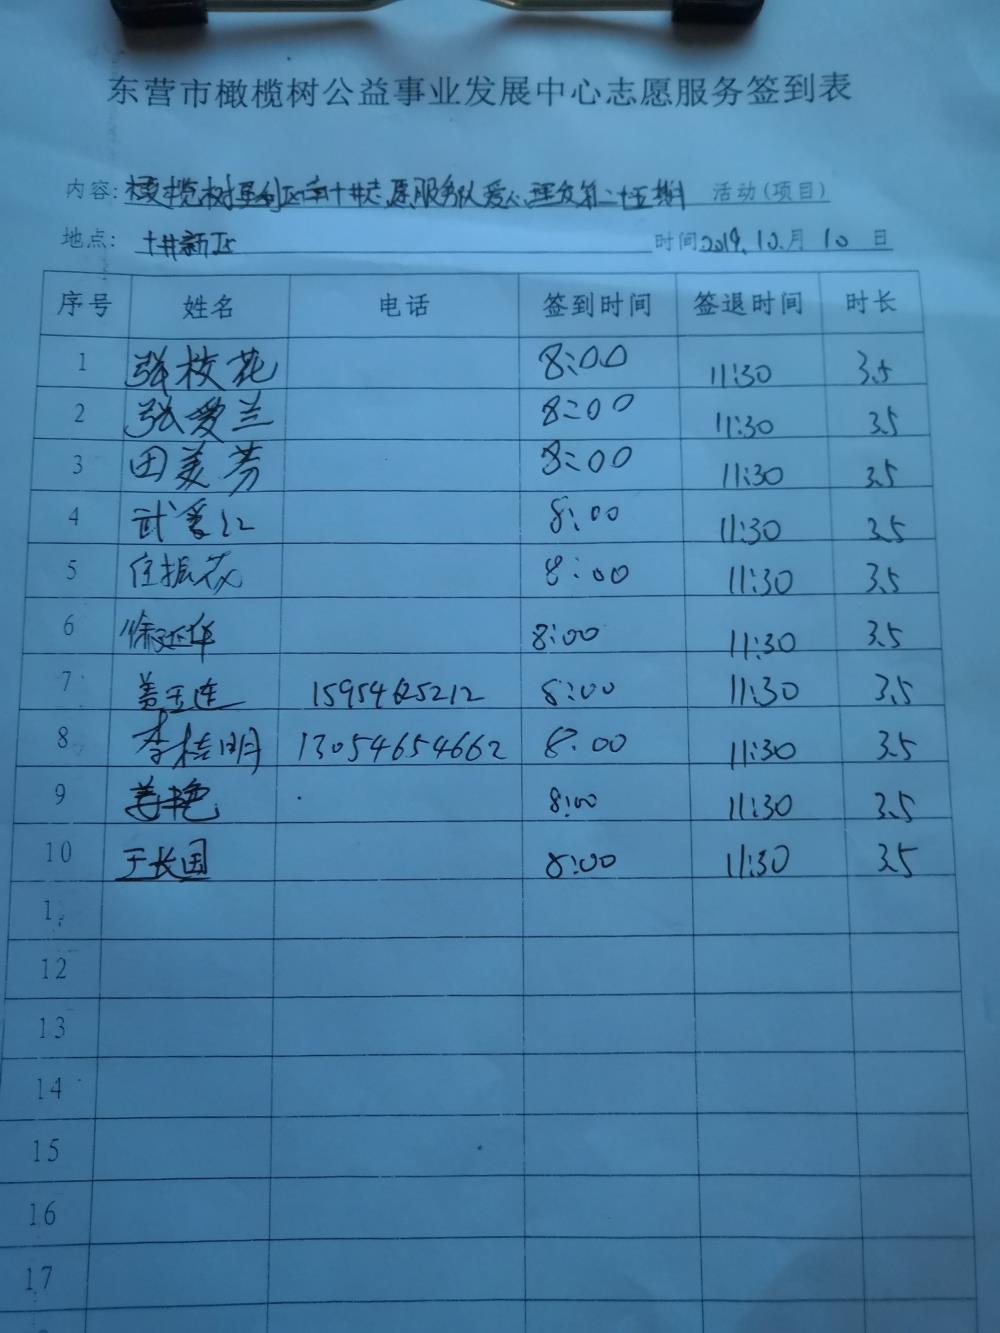 东营市橄榄树公益事业发展中心志愿服务签到表
内容: 橄榄树垦利区南十井志愿服务队爱心理发第二十五期 活动(项目)
地点: 十井新区 时间 2019.10.月 10 日
序号 姓名 电话 签到时间 签退时间 时长
1 张枝花 8:00 11:30 3.5
2 张爱兰 8:00 11:30 3.5
3 田美芳 8:00 11:30 3.5
4 武爱江 8:00 11:30 3.5
5 任振花 8:00 11:30 3.5
6 徐延华 8:00 11:30 3.5
7 盖玉连 15954625212 8:00 11:30 3.5
8 李桂明 13054654662 8:00 11:30 3.5
9 姜艳 8:00 11:30 3.5
10 于长国 8:00 11:30 3.5
1
12
13
14
15
16
17